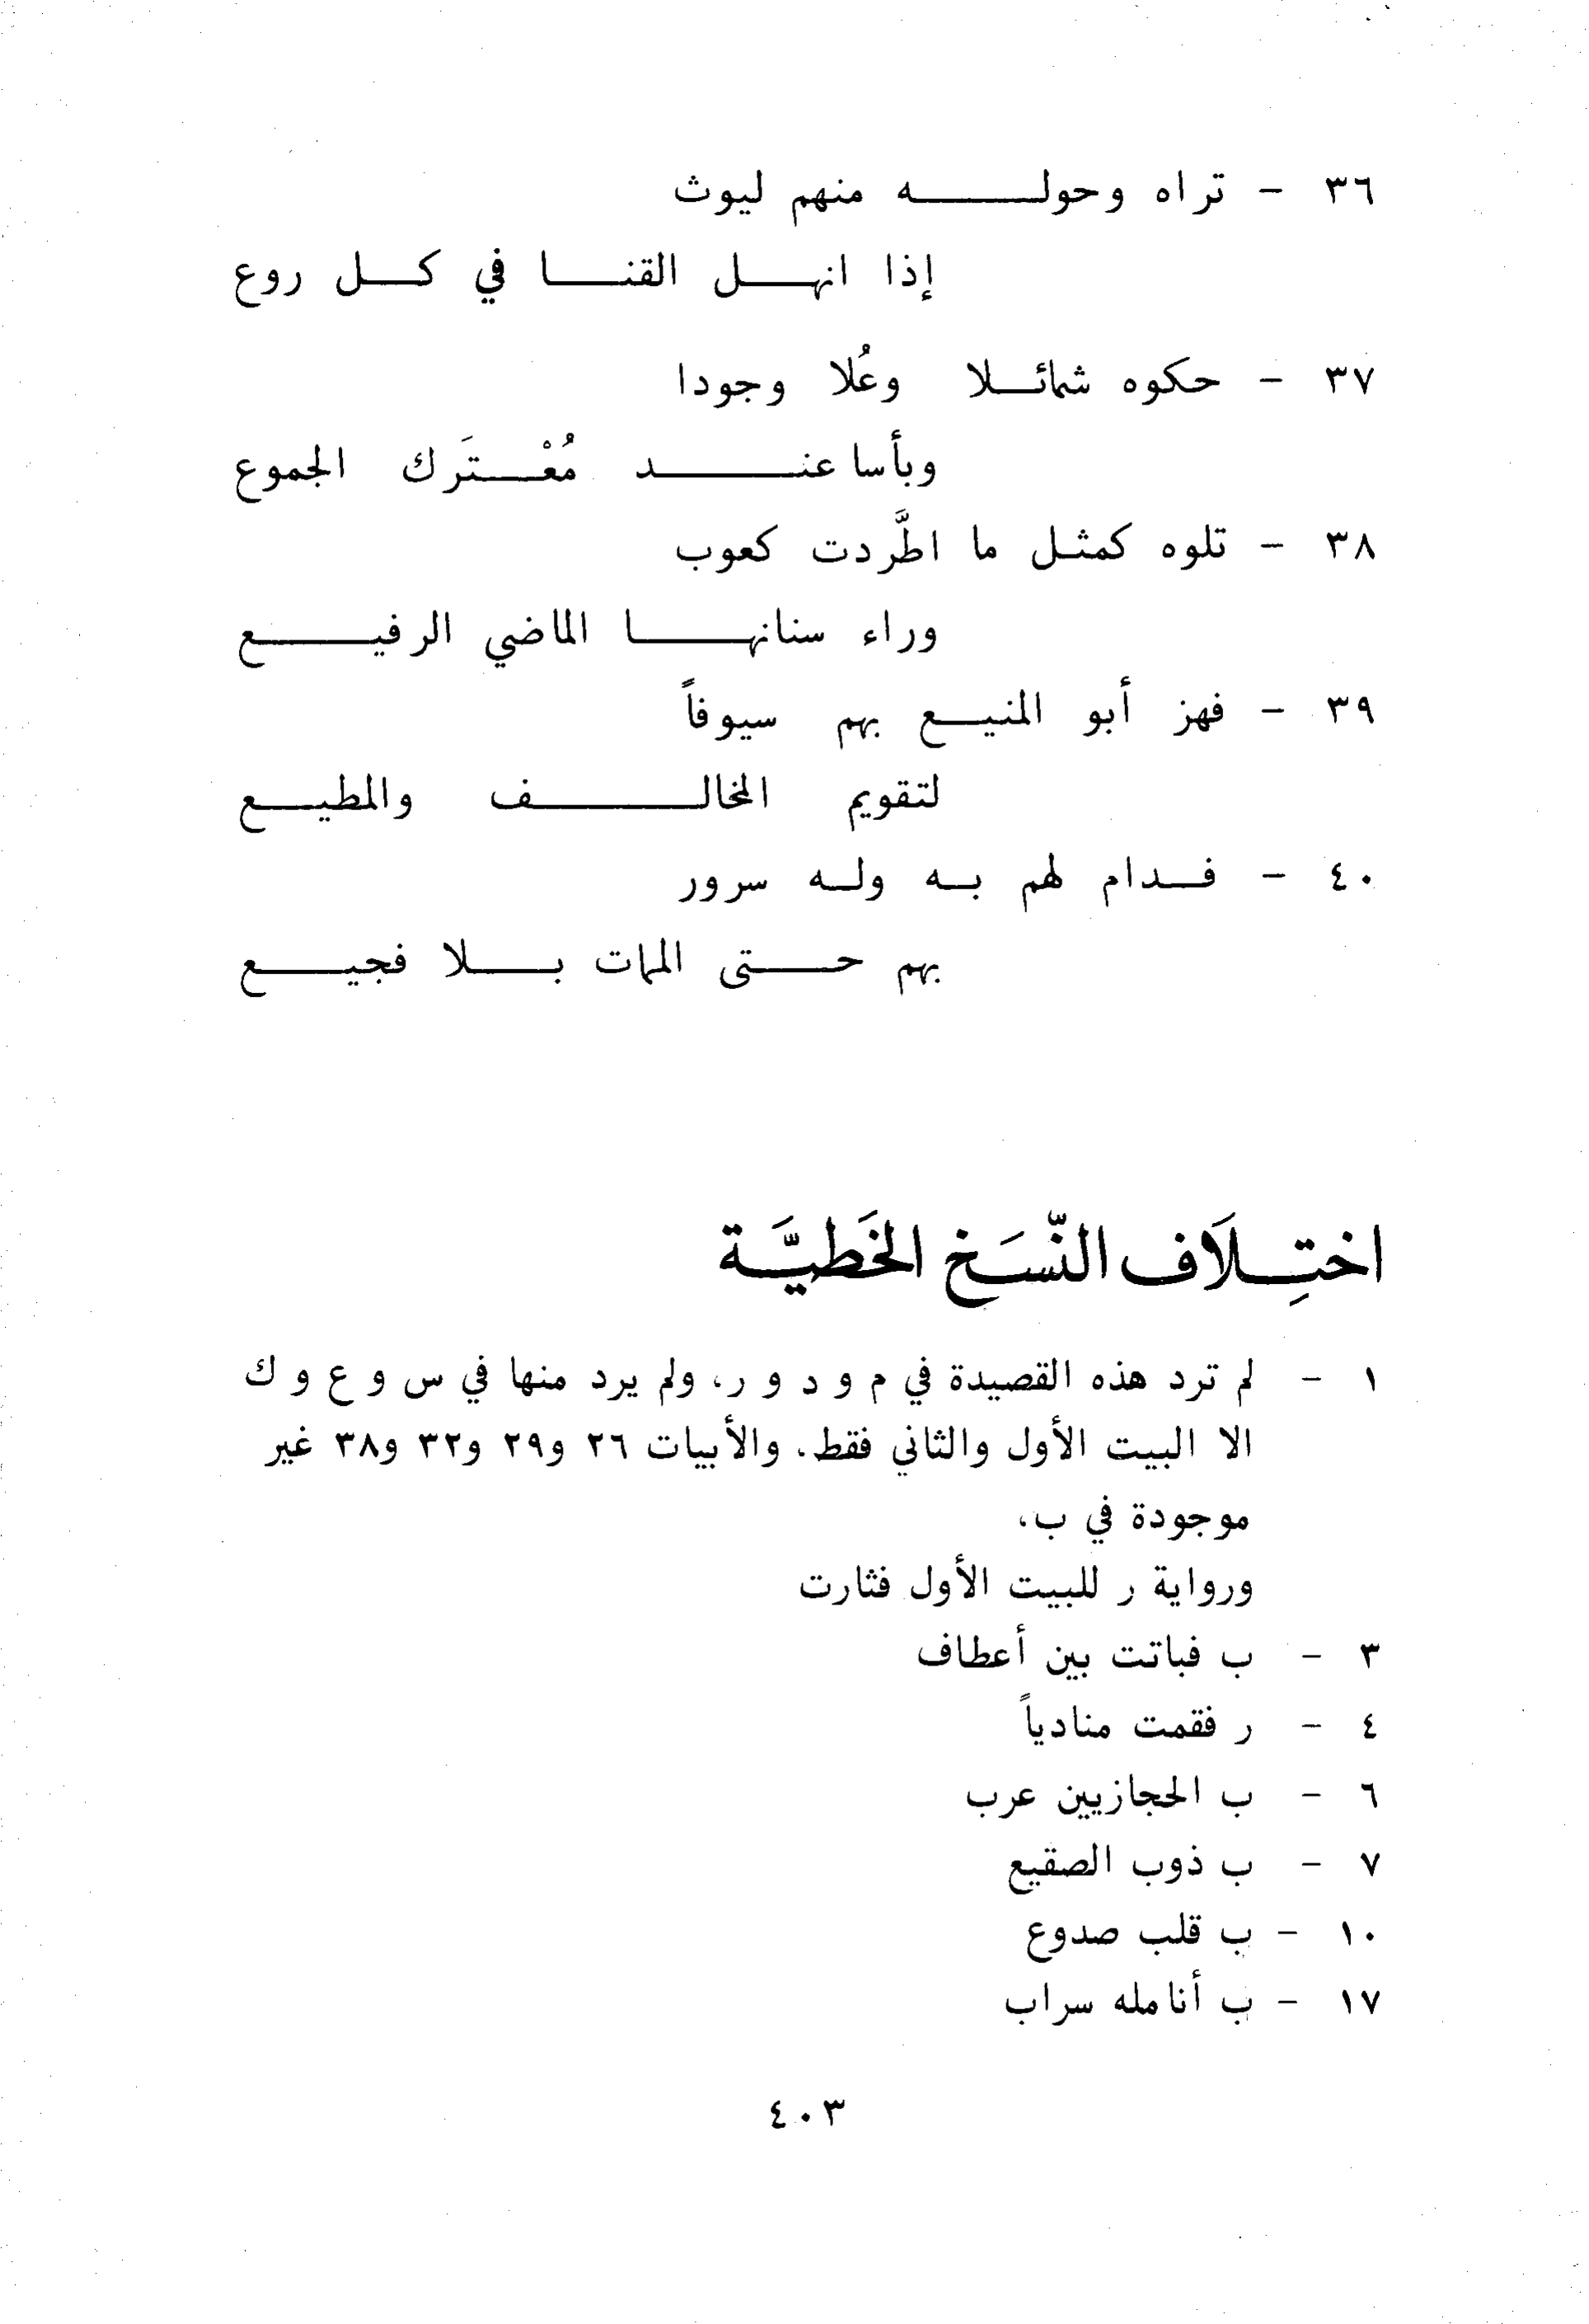 ٣٦ - تراه وحوله منهم ليوث
إذا انهل القنا في كل روع
٣٧ - حكوه شمائلا وعُلا وجودا
وبأسا عند مُعْتَرك الجموع
٣٨ - تلوه كمثل ما اطَّردت كعوب
وراء سنانها الماضي الرفيع
٣٩ - فهز أبو المنيع بهم سيوفاً
لتقويم المخالف والمطيع
٤٠ - فدام لهم به وله سرور
بهم حتى الممات بلا فجيع
اختِلَاف النّسَخ الخَطيَّة
١ - لم ترد هذه القصيدة في م و د و ر، ولم يرد منها في س و ع و ك
الا البيت الأول والثاني فقط. والأبيات ٢٦ و٢٩ و٣٢ و٣٨ غير
موجودة في ب،
ورواية ر للبيت الأول فثارت
٣ - ب فباتت بين أعطاف
٤ - ر فقمت منادياً
٦ - ب الحجازيين عرب
٧ - ب ذوب الصقيع
١٠ - ب قلب صدوع
١٧ - ب أنامله سراب
٤٠٣